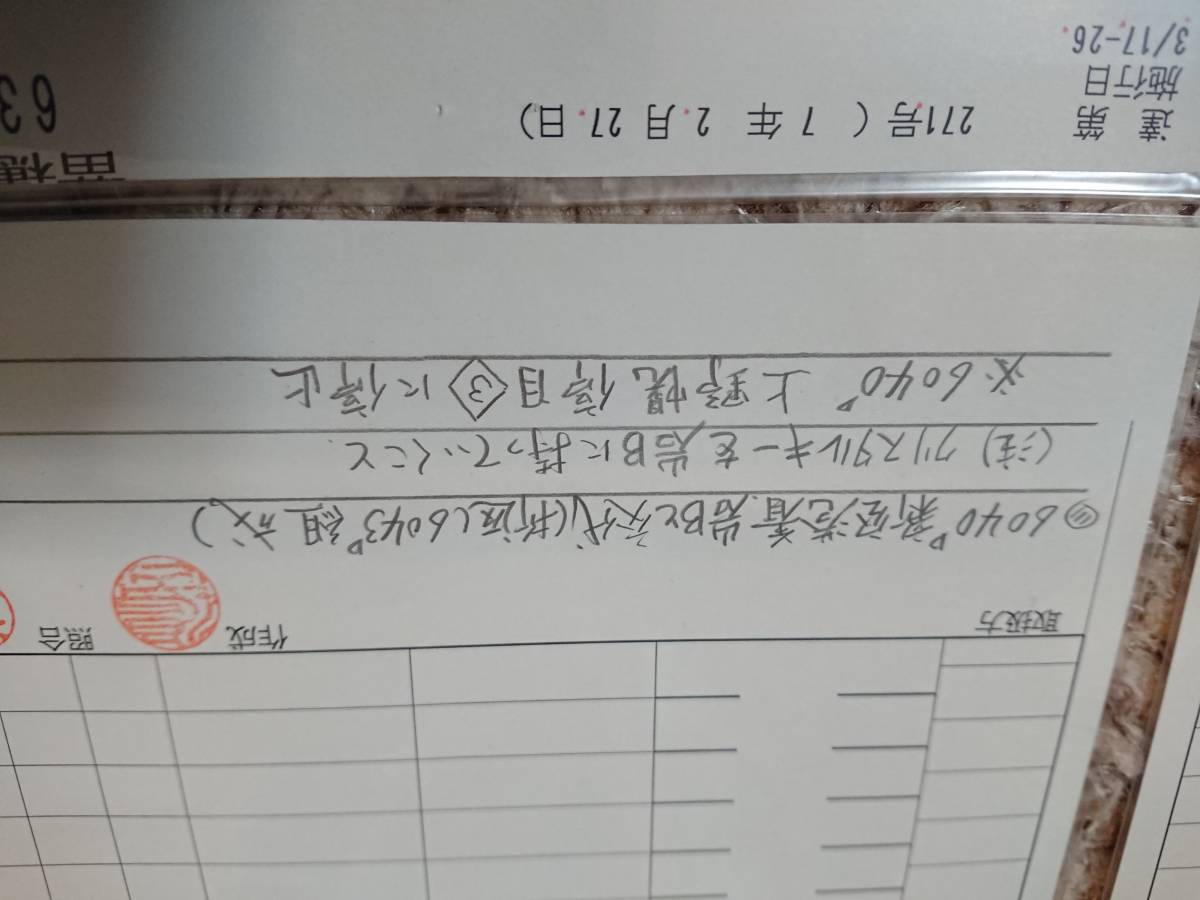 取扱方 作成 照合
6040D 新空港着、岩Bと交代(折返し6043D組成)
(注) クリスタルキーを岩Bに持っていくこと
※6040D 上野幌 停目③に停止
苗穂
達 第 271号 ( 7年 2月 27日)
施行日
3/17-26